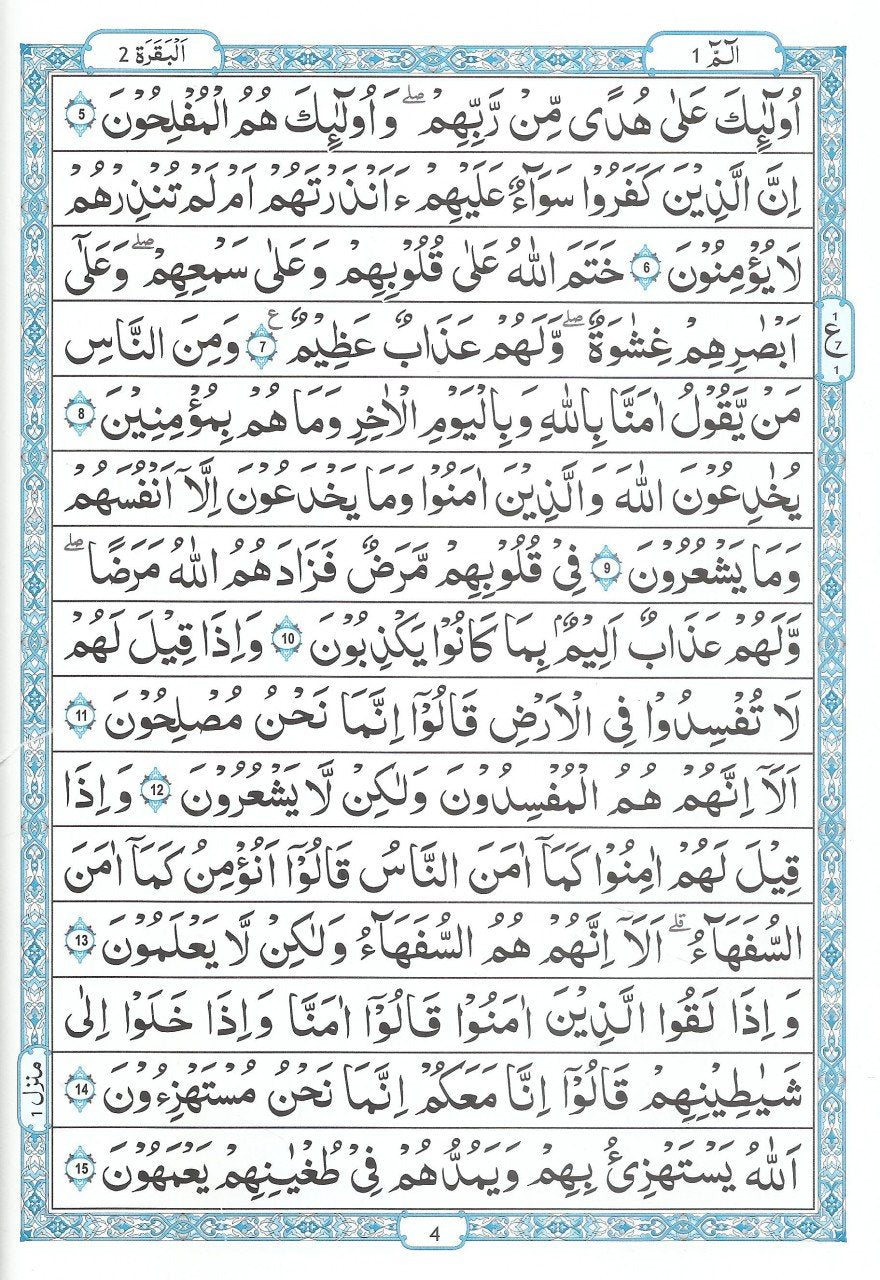 الٓمّٓ 1
اَلْبَقَرَة 2
اُولٰٓئِكَ عَلٰى هُدًى مِّنْ رَّبِّهِمْ ۖ وَاُولٰٓئِكَ هُمُ الْمُفْلِحُوْنَ 5
اِنَّ الَّذِيْنَ كَفَرُوْا سَوَآءٌ عَلَيْهِمْ ءَاَنْذَرْتَهُمْ اَمْ لَمْ تُنْذِرْهُمْ
لَا يُؤْمِنُوْنَ 6 خَتَمَ اللّٰهُ عَلٰى قُلُوْبِهِمْ وَعَلٰى سَمْعِهِمْ ۖ وَعَلٰٓى
اَبْصَارِهِمْ غِشٰوَةٌ ۖ وَّلَهُمْ عَذَابٌ عَظِيْمٌ 7 ع وَمِنَ النَّاسِ
1
ع
7
1
مَنْ يَّقُوْلُ اٰمَنَّا بِاللّٰهِ وَبِالْيَوْمِ الْاٰخِرِ وَمَا هُمْ بِمُؤْمِنِيْنَ 8
يُخٰدِعُوْنَ اللّٰهَ وَالَّذِيْنَ اٰمَنُوْا وَمَا يَخْدَعُوْنَ اِلَّآ اَنْفُسَهُمْ
وَمَا يَشْعُرُوْنَ 9 فِيْ قُلُوْبِهِمْ مَّرَضٌ فَزَادَهُمُ اللّٰهُ مَرَضًا ۖ
وَّلَهُمْ عَذَابٌ اَلِيْمٌ ۢ بِمَا كَانُوْا يَكْذِبُوْنَ 10 وَاِذَا قِيْلَ لَهُمْ
لَا تُفْسِدُوْا فِى الْاَرْضِ قَالُوْٓا اِنَّمَا نَحْنُ مُصْلِحُوْنَ 11
اَلَآ اِنَّهُمْ هُمُ الْمُفْسِدُوْنَ وَلٰكِنْ لَّا يَشْعُرُوْنَ 12 وَاِذَا
قِيْلَ لَهُمْ اٰمِنُوْا كَمَآ اٰمَنَ النَّاسُ قَالُوْٓا اَنُؤْمِنُ كَمَآ اٰمَنَ
السُّفَهَآءُ ۗ اَلَآ اِنَّهُمْ هُمُ السُّفَهَآءُ وَلٰكِنْ لَّا يَعْلَمُوْنَ 13
وَاِذَا لَقُوا الَّذِيْنَ اٰمَنُوْا قَالُوْٓا اٰمَنَّا وَاِذَا خَلَوْا اِلٰى
شَيٰطِيْنِهِمْ قَالُوْٓا اِنَّا مَعَكُمْ اِنَّمَا نَحْنُ مُسْتَهْزِءُوْنَ 14
منزل 1
اَللّٰهُ يَسْتَهْزِئُ بِهِمْ وَيَمُدُّهُمْ فِيْ طُغْيٰنِهِمْ يَعْمَهُوْنَ 15
4